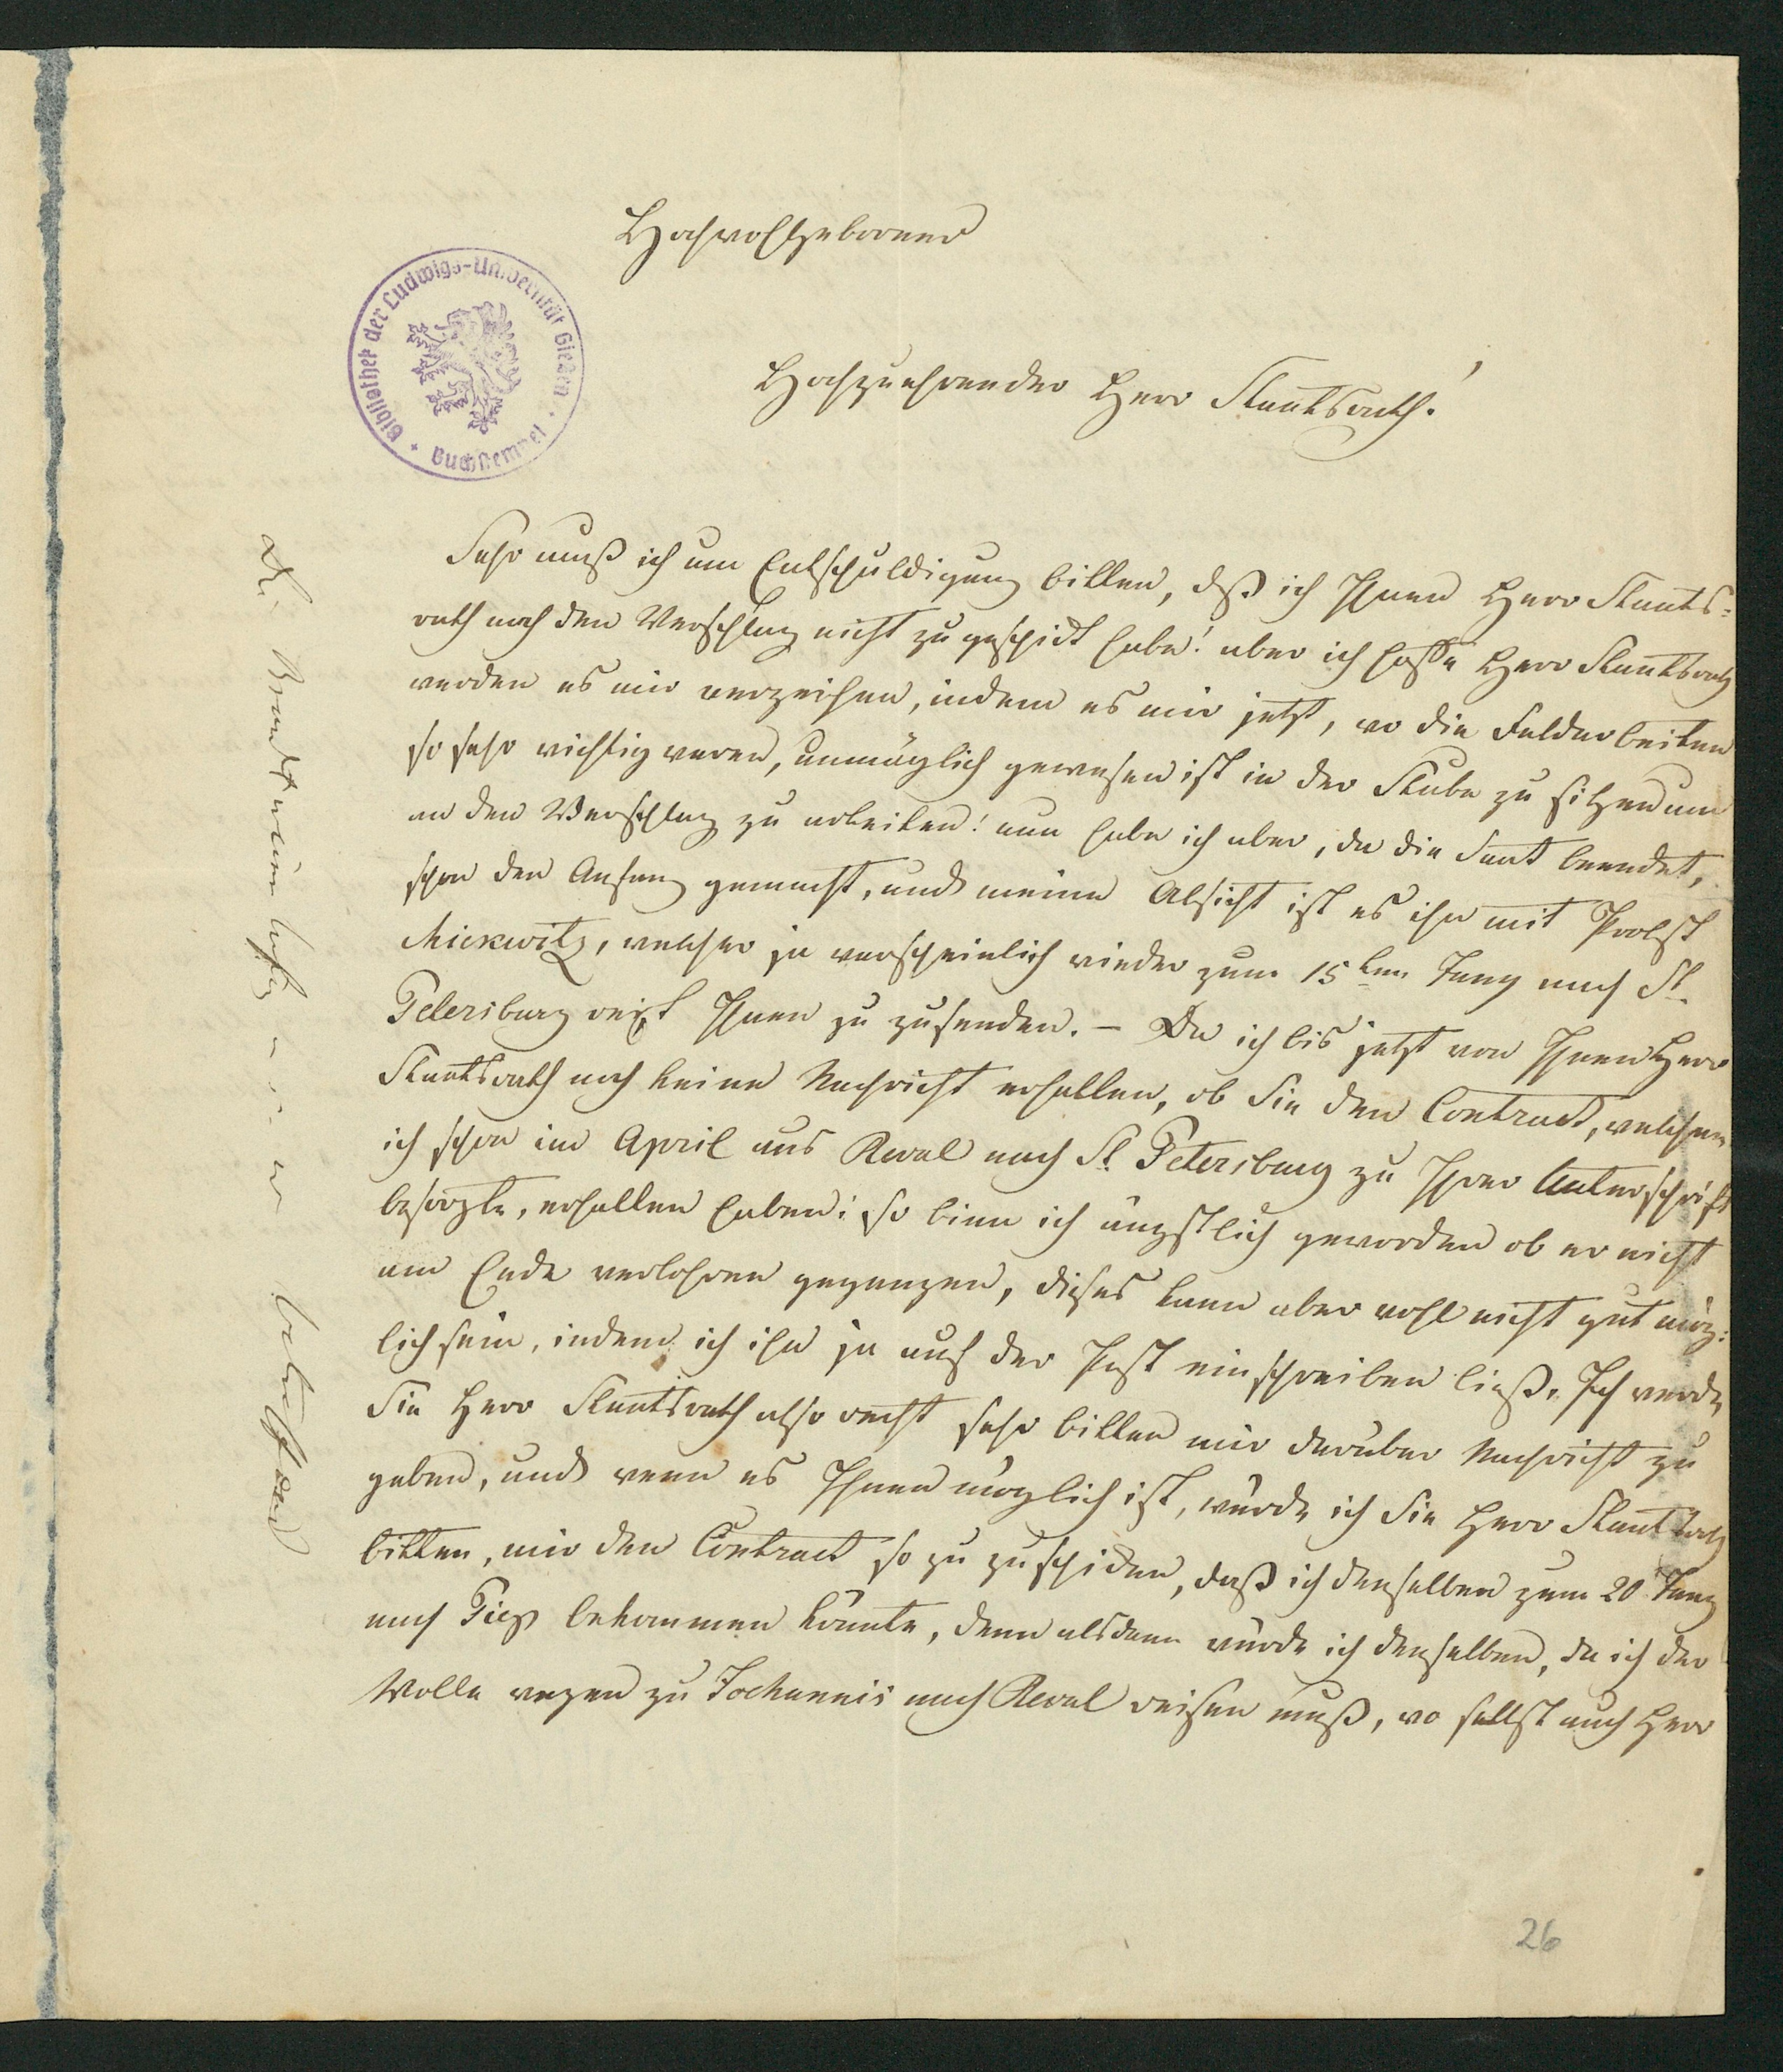 Hochwohlgeborener
Bibliothek der Ludwigs-Universität Gießen
Buchstempel
Hochzuehrender Herr Staatsrath!
Sehr muß ich um Entschuldigung bitten, dß ich Ihnen Herr Staats-
rath noch den Verschlag nicht zugeschickt habe! aber ich hoffe Herr Staatsrath
werden es mir verzeihen, indem es mir jetzt, wo die Feldarbeiten
so sehr wichtig waren, unmöglich gewesen ist in der Stube zu sitzen um
an den Verschlag zu arbeiten! nun habe ich aber, da die Saat beendet,
schon den Anfang gemacht, und meine Absicht ist es ihn mit Probst
Mickwitz, welcher ja warscheinlich wieder zum 15ten Juny nach St.
Petersburg reist Ihnen zu zusenden. – Da ich bis jetzt von Ihnen Herr
Staatsrath noch keine Nachricht erhalten, ob Sie den Contract, welchen
ich schon im April aus Reval nach St. Petersburg zu Ihrer Unterschrift
besorgte, erhalten haben: so binn ich ängstlich geworden ob er nicht
am Ende verlohren gegangen, dieses kann aber wohl nicht gut mög-
lich sein, indem ich ihn ja auf der Post einschreiben ließ. Ich werde
Sie Herr Staatsrath also recht sehr bitten mir darüber Nachricht zu
geben, und wenn es Ihnen möglich ist, würde ich Sie Herr Staatsrath
bitten, mir den Contract so zu zuschicken, daß ich denselben zum 20 Juny
nach Piep bekommen könnte, denn alsdann würde ich denselben, da ich der
Wolle wegen zu Johannis nach Reval reisen muß, wo selbst auch Herr
26